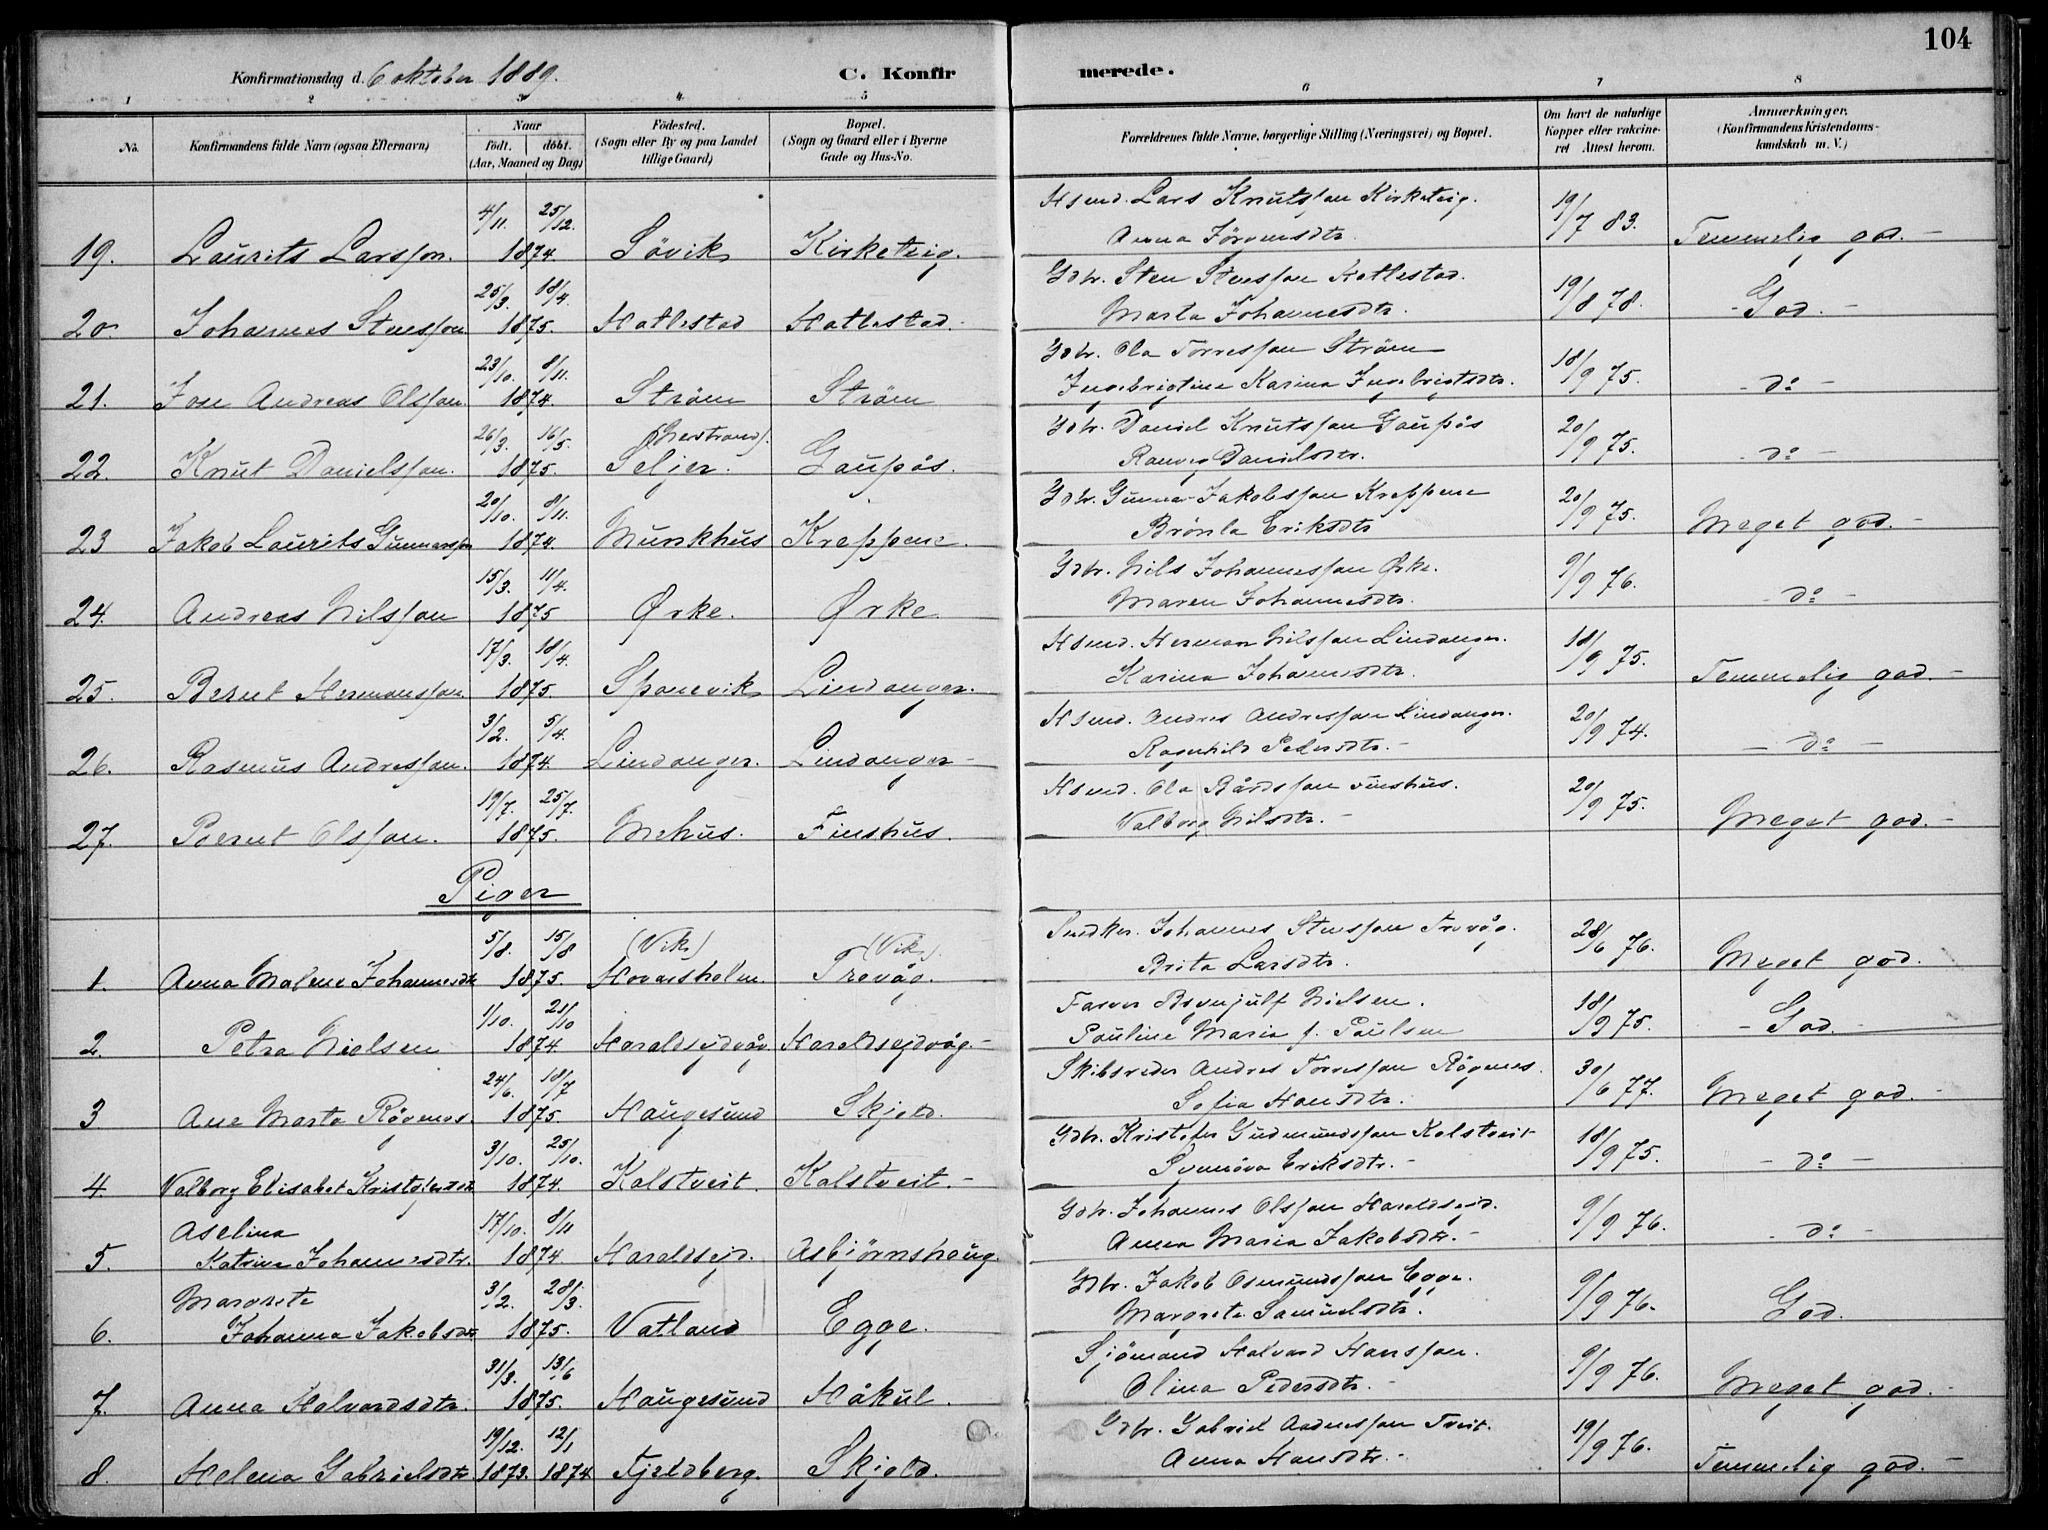 104
Konfirmationsdag d. 6 oktober 1889.
C. Konfirmerede.
1 2 3 4 5 6 7 8
No.
Konfirmandens fulde Navn (ogsaa Efternavn)
Naar
født. døbt.
(Aar, Maaned og Dag)
Fødested.
(Sogn eller By og paa Landet
tillige Gaard)
Bopæl.
(Sogn og Gaard eller i Byerne
Gade og Hus-No.
Forældrenes fulde Navne, borgerlige Stilling (Næringsvei) og Bopæl.
Om havt de naturlige
Kopper eller vakcine-
ret Attest herom.
Anmærkninger.
(Konfirmandens Kristendoms-
kundskab m. V.)
4/11. 25/12. Hsmd. Lars Knutsson Kirketeig.
19. Laurits Larsson. 1874. Søvik Kirketeig. Anna Jørgensdtr. 19/7 83. Temmelig god. -
25/3. 18/4. Gdbr. Sten Stensson Hatlestad.
20. Johannes Stensson 1875. Hatlestad Hatlestad. Marta Johannesdtr. 19/8 78. - God. -
23/10. 8/11. Gdbr. Ola Torresson Strøm
21. Jone Andreas Olsson. 1874. Strøm Strøm Ingebrigtine Karina Ingebrigtsdtr. 18/9 75. - do -
26/3. 16/5. (Nerstrand). Gdbr. Daniel Knutsson Gaupås
22. Knut Danielsson. 1875. Seljer. Gaupås. Ranveg Danielsdtr. 20/9 75. - do -
20/10. 8/11. Gdbr. Gunnar Jakobsson Kreppene
23 Jakob Laurits Gunnarsson 1874. Munkhus Kreppene. Brønla Eriksdtr 20/9 75. Meget god. -
15/3. 11/4. Gdbr. Nils Johannesson Ørke.
24. Andreas Nilsson 1875 Ørke. Ørke. Maren Johannesdtr. 9/9 76. - do -
17/3. 18/4. Hsmd. Herman Nilsson Lindanger.
25. Bernt Hermansson 1875. Spanevik Lindanger. Karina Johannesdtr. 18/9 75. Temmelig god. -
3/2. 5/4. Hsmd. Andres Andresson Lindanger.
26. Rasmus Andresson. 1874. Lindanger. Lindanger - Ragnhild Pedersdtr. - 20/9 74. - do -
19/7. 25/7. Hsmd. Ola Bårdsson Finshus.
27. Bernt Olsson. 1875. Mehus. Finshus. Valborg Nilsdtr. - 20/9 75. Meget god. -
Piger
5/8. 15/8 (Vik) (Vik). Snedker. Johannes Stensson Trovåg.
1. Anna Malene Johannesdtr 1875. Hovarsholm. Trovåg. Brita Larsdtr. 28/6 76. Meget god.
1/10. 21/10 Farver Brynjulf Nielsen.
2. Petra Nielsen 1874. Haraldsejdvåg Haraldsejdvåg. - Pauline Maria f. Paulsen 18/9 75. - God. -
24/6. 18/7 Skibsreder Andres Torresson Røgenes.
3 Ane Marta Røgenes. 1875. Haugesund Skjold. Sofia Hansdtr. 30/6 77. Meget god. -
3/10. 25/10. Gdbr. Kristofer Gudmundsson Kalstveit
4 Valborg Elisabet Kristofersdtr 1874. Kalstveit. Kalstveit. - Synnøva Eriksdtr. - 18/9 75. - do -
Aselina 17/10. 8/11 Gdbr. Johannes Olsson Haraldsejd.
5. Katrina Johannesdtr. 1874. Haraldsejd. Asbjørnshaug. Anna Maria Jakobsdtr. - 9/9 76. - do -
Margreta 3/2. 28/3. Gdbr. Jakob Osmundsson Egge.
6. Johanna Jakobsdtr 1875. Vatland Egge. Margreta Samuelsdtr. 9/9 76. God.
31/3. 13/6 Sjømand Halvard Hansson.
7. Anna Halvardsdtr. 1875. Haugesund Håkul. Olina Pedersdtr. - 9/9 76. Meget god. -
19/12. 12/1 Gdbr. Gabriel Andersson Tveit.
8. Helena Gabrielsdtr 1873. 1874 Fjeldberg. Skjold. Anna Hansdtr. - 19/9 76. Temmelig god. -